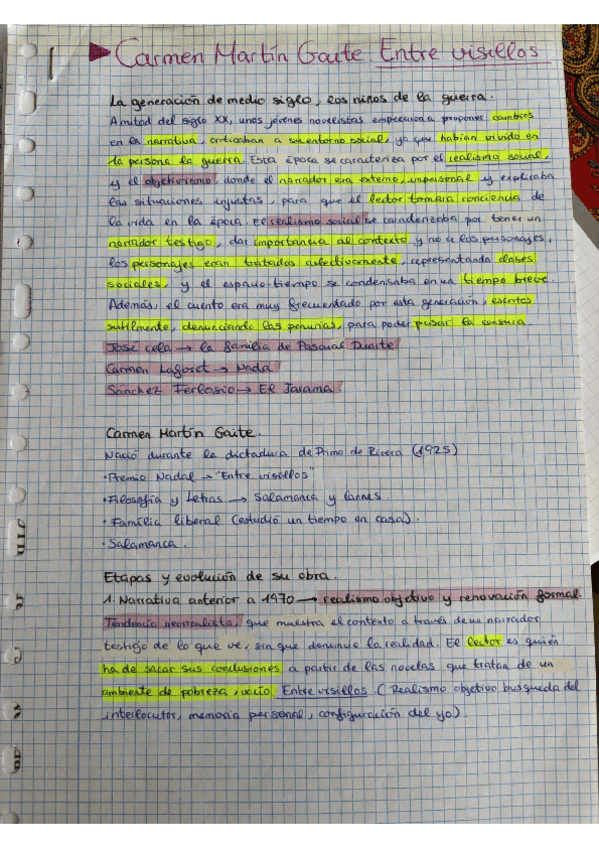 Carmen Martín Gaite. Entre visillos
La generación de medio siglo, los niños de la guerra.
A mitad del siglo XX, unos jóvenes novelistas empezaron a proponer cambios
en la narrativa, criticaban a su entorno social, ya que habían vivido en
la persona la guerra. Esta época se caracteriza por el realismo social,
y el objetivismo, donde el narrador era externo, impersonal y explicaba
las situaciones injustas, para que el lector tomara conciencia de
la vida en la época. El realismo social se caracterizaba por tener un
narrador testigo, dar importancia al contexto y no a los personajes,
los personajes eran tratados colectivamente, representando clases
sociales, y el espacio-tiempo se condensaba en un tiempo breve.
Además, el cuento era muy frecuentado por esta generación, escritos
sutilmente, denunciando las penurias, para poder pasar la censura.
José Cela → la familia de Pascual Duarte
Carmen Laforet → Nada
Sánchez Ferlosio → El Jarama
Carmen Martín Gaite.
Nació durante la dictadura de Primo de Rivera (1925)
·Premio Nadal → "Entre visillos"
·Filosofía y Letras → Salamanca y
· Familia liberal (estudió un tiempo en casa).
·Salamanca.
Etapas y evolución de su obra.
1. Narrativa anterior a 1970 → realismo objetivo y renovación formal.
Tendencia neorrealista, que muestra el contexto a través de un narrador
testigo de lo que ve, sin que denuncie la realidad. El lector es quién
ha de sacar sus conclusiones a partir de las novelas que tratan de un
ambiente de pobreza, vacío. Entre visillos. (Realismo objetivo busqueda del
interlocutor, memoria personal, configuración del yo).